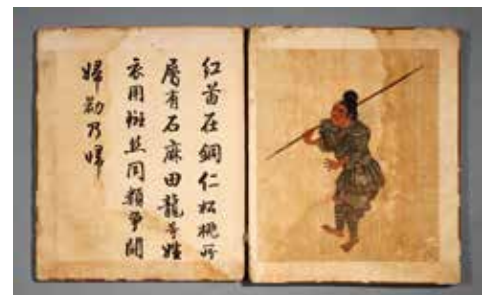 紅苗在銅仁松桃所
屬有石麻田龍等姓
衣用斑絲同類爭鬪
婦勸乃解